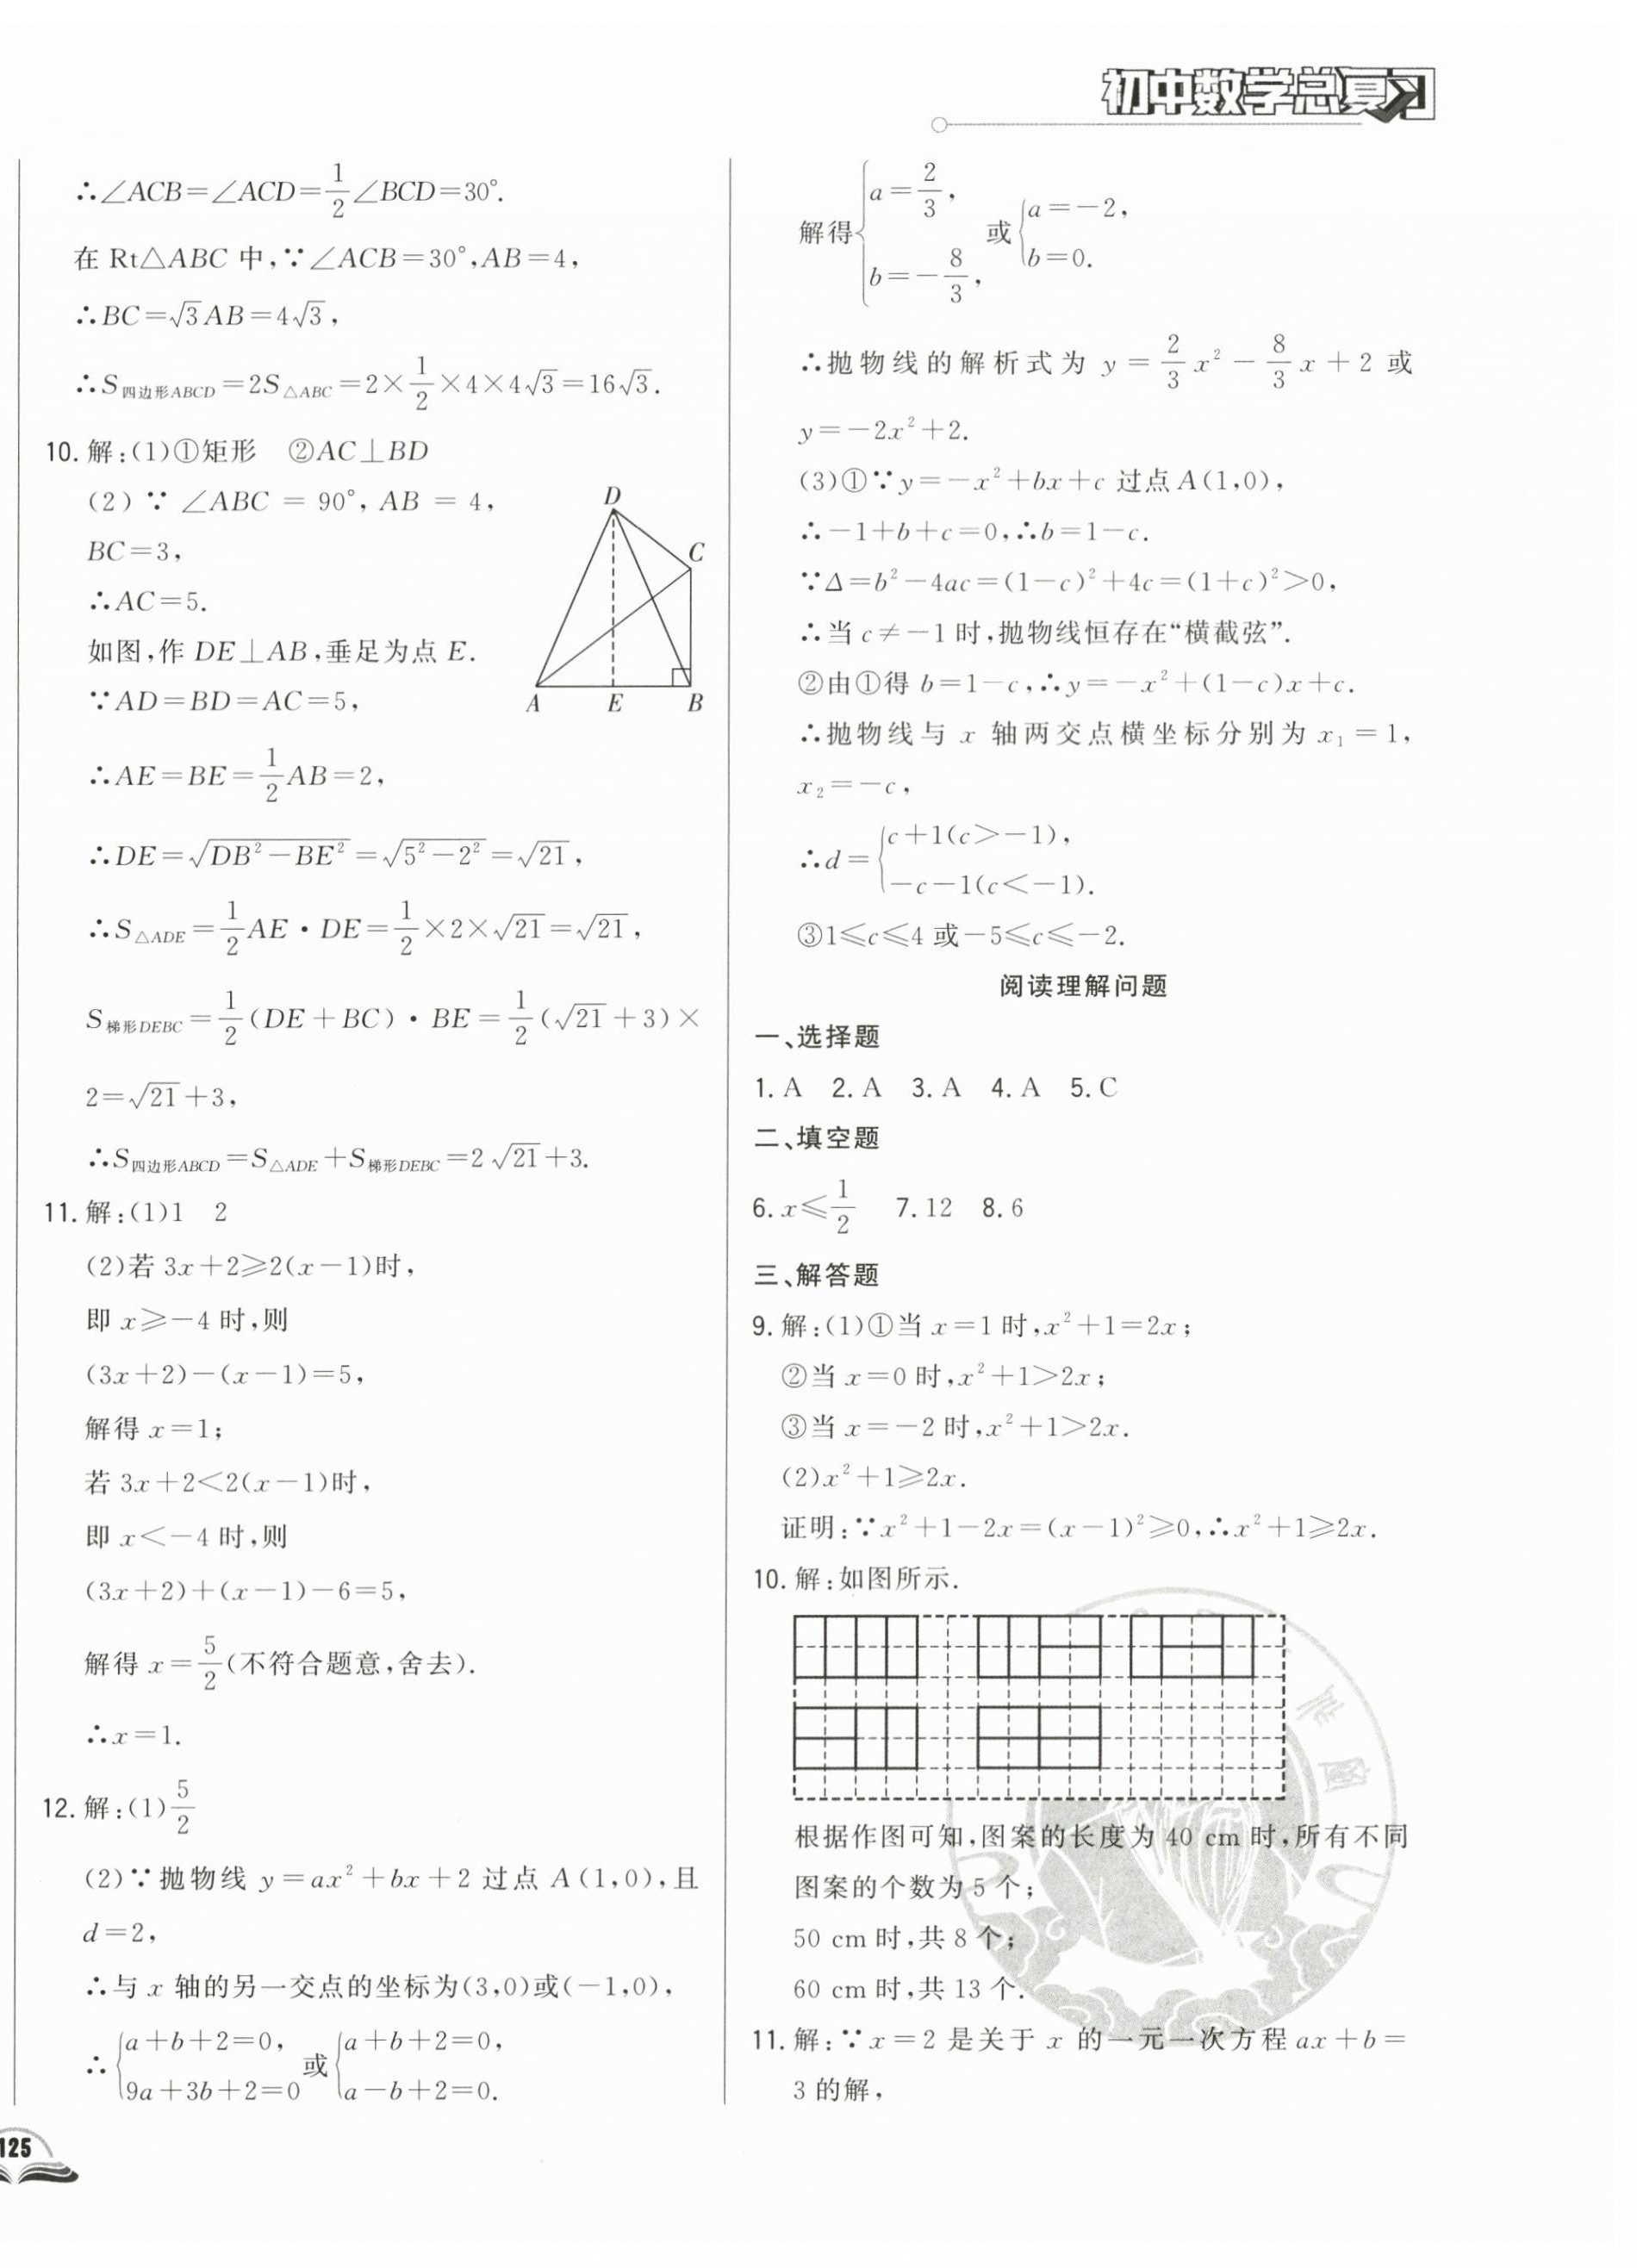 初中数学总复习
∴∠ACB=∠ACD=1/2∠BCD=30°.
在 Rt△ABC 中,∵∠ACB=30°,AB=4,
∴BC=√3AB=4√3,
∴S四边形ABCD=2S△ABC=2×1/2×4×4√3=16√3.
10. 解:(1)①矩形 ②AC⊥BD
(2)∵ ∠ABC = 90°, AB = 4,
BC=3,
∴AC=5.
如图,作 DE⊥AB,垂足为点 E.
∵AD=BD=AC=5,
D
C
A E B
∴AE=BE=1/2AB=2,
∴DE=√(DB²-BE²)=√(5²-2²)=√21,
∴S△ADE=1/2AE·DE=1/2×2×√21=√21,
S梯形DEBC=1/2(DE+BC)·BE=1/2(√21+3)×
2=√21+3,
∴S四边形ABCD=S△ADE+S梯形DEBC=2√21+3.
11. 解:(1)1 2
(2)若 3x+2≥2(x-1)时,
即 x≥-4 时,则
(3x+2)-(x-1)=5,
解得 x=1;
若 3x+2<2(x-1)时,
即 x<-4 时,则
(3x+2)+(x-1)-6=5,
解得 x=5/2(不符合题意,舍去).
∴x=1.
12. 解:(1)5/2
(2)∵抛物线 y=ax²+bx+2 过点 A(1,0),且
d=2,
∴与 x 轴的另一交点的坐标为(3,0)或(-1,0),
∴{a+b+2=0, 9a+3b+2=0 或 {a+b+2=0, a-b+2=0.
125
解得{a=2/3, b=-8/3, 或 {a=-2, b=0.
∴抛物线的解析式为 y=2/3x²-8/3x+2 或
y=-2x²+2.
(3)①∵y=-x²+bx+c 过点A(1,0),
∴-1+b+c=0,∴b=1-c.
∵Δ=b²-4ac=(1-c)²+4c=(1+c)²>0,
∴当 c≠-1 时,抛物线恒存在“横截弦”.
②由①得 b=1-c,∴y=-x²+(1-c)x+c.
∴抛物线与 x 轴两交点横坐标分别为 x₁=1,
x₂=-c,
∴d={c+1(c>-1), -c-1(c<-1).
③1≤c≤4 或-5≤c≤-2.
阅读理解问题
一、选择题
1. A 2. A 3. A 4. A 5. C
二、填空题
6. x≤1/2 7. 12 8. 6
三、解答题
9. 解:(1)①当 x=1 时,x²+1=2x;
②当 x=0 时,x²+1>2x;
③当 x=-2 时,x²+1>2x.
(2)x²+1≥2x.
证明:∵x²+1-2x=(x-1)²≥0,∴x²+1≥2x.
10. 解:如图所示.
根据作图可知,图案的长度为 40 cm 时,所有不同
图案的个数为 5 个;
50 cm 时,共 8 个;
60 cm 时,共 13 个.
11. 解:∵x=2 是关于 x 的一元一次方程 ax+b=
3 的解,